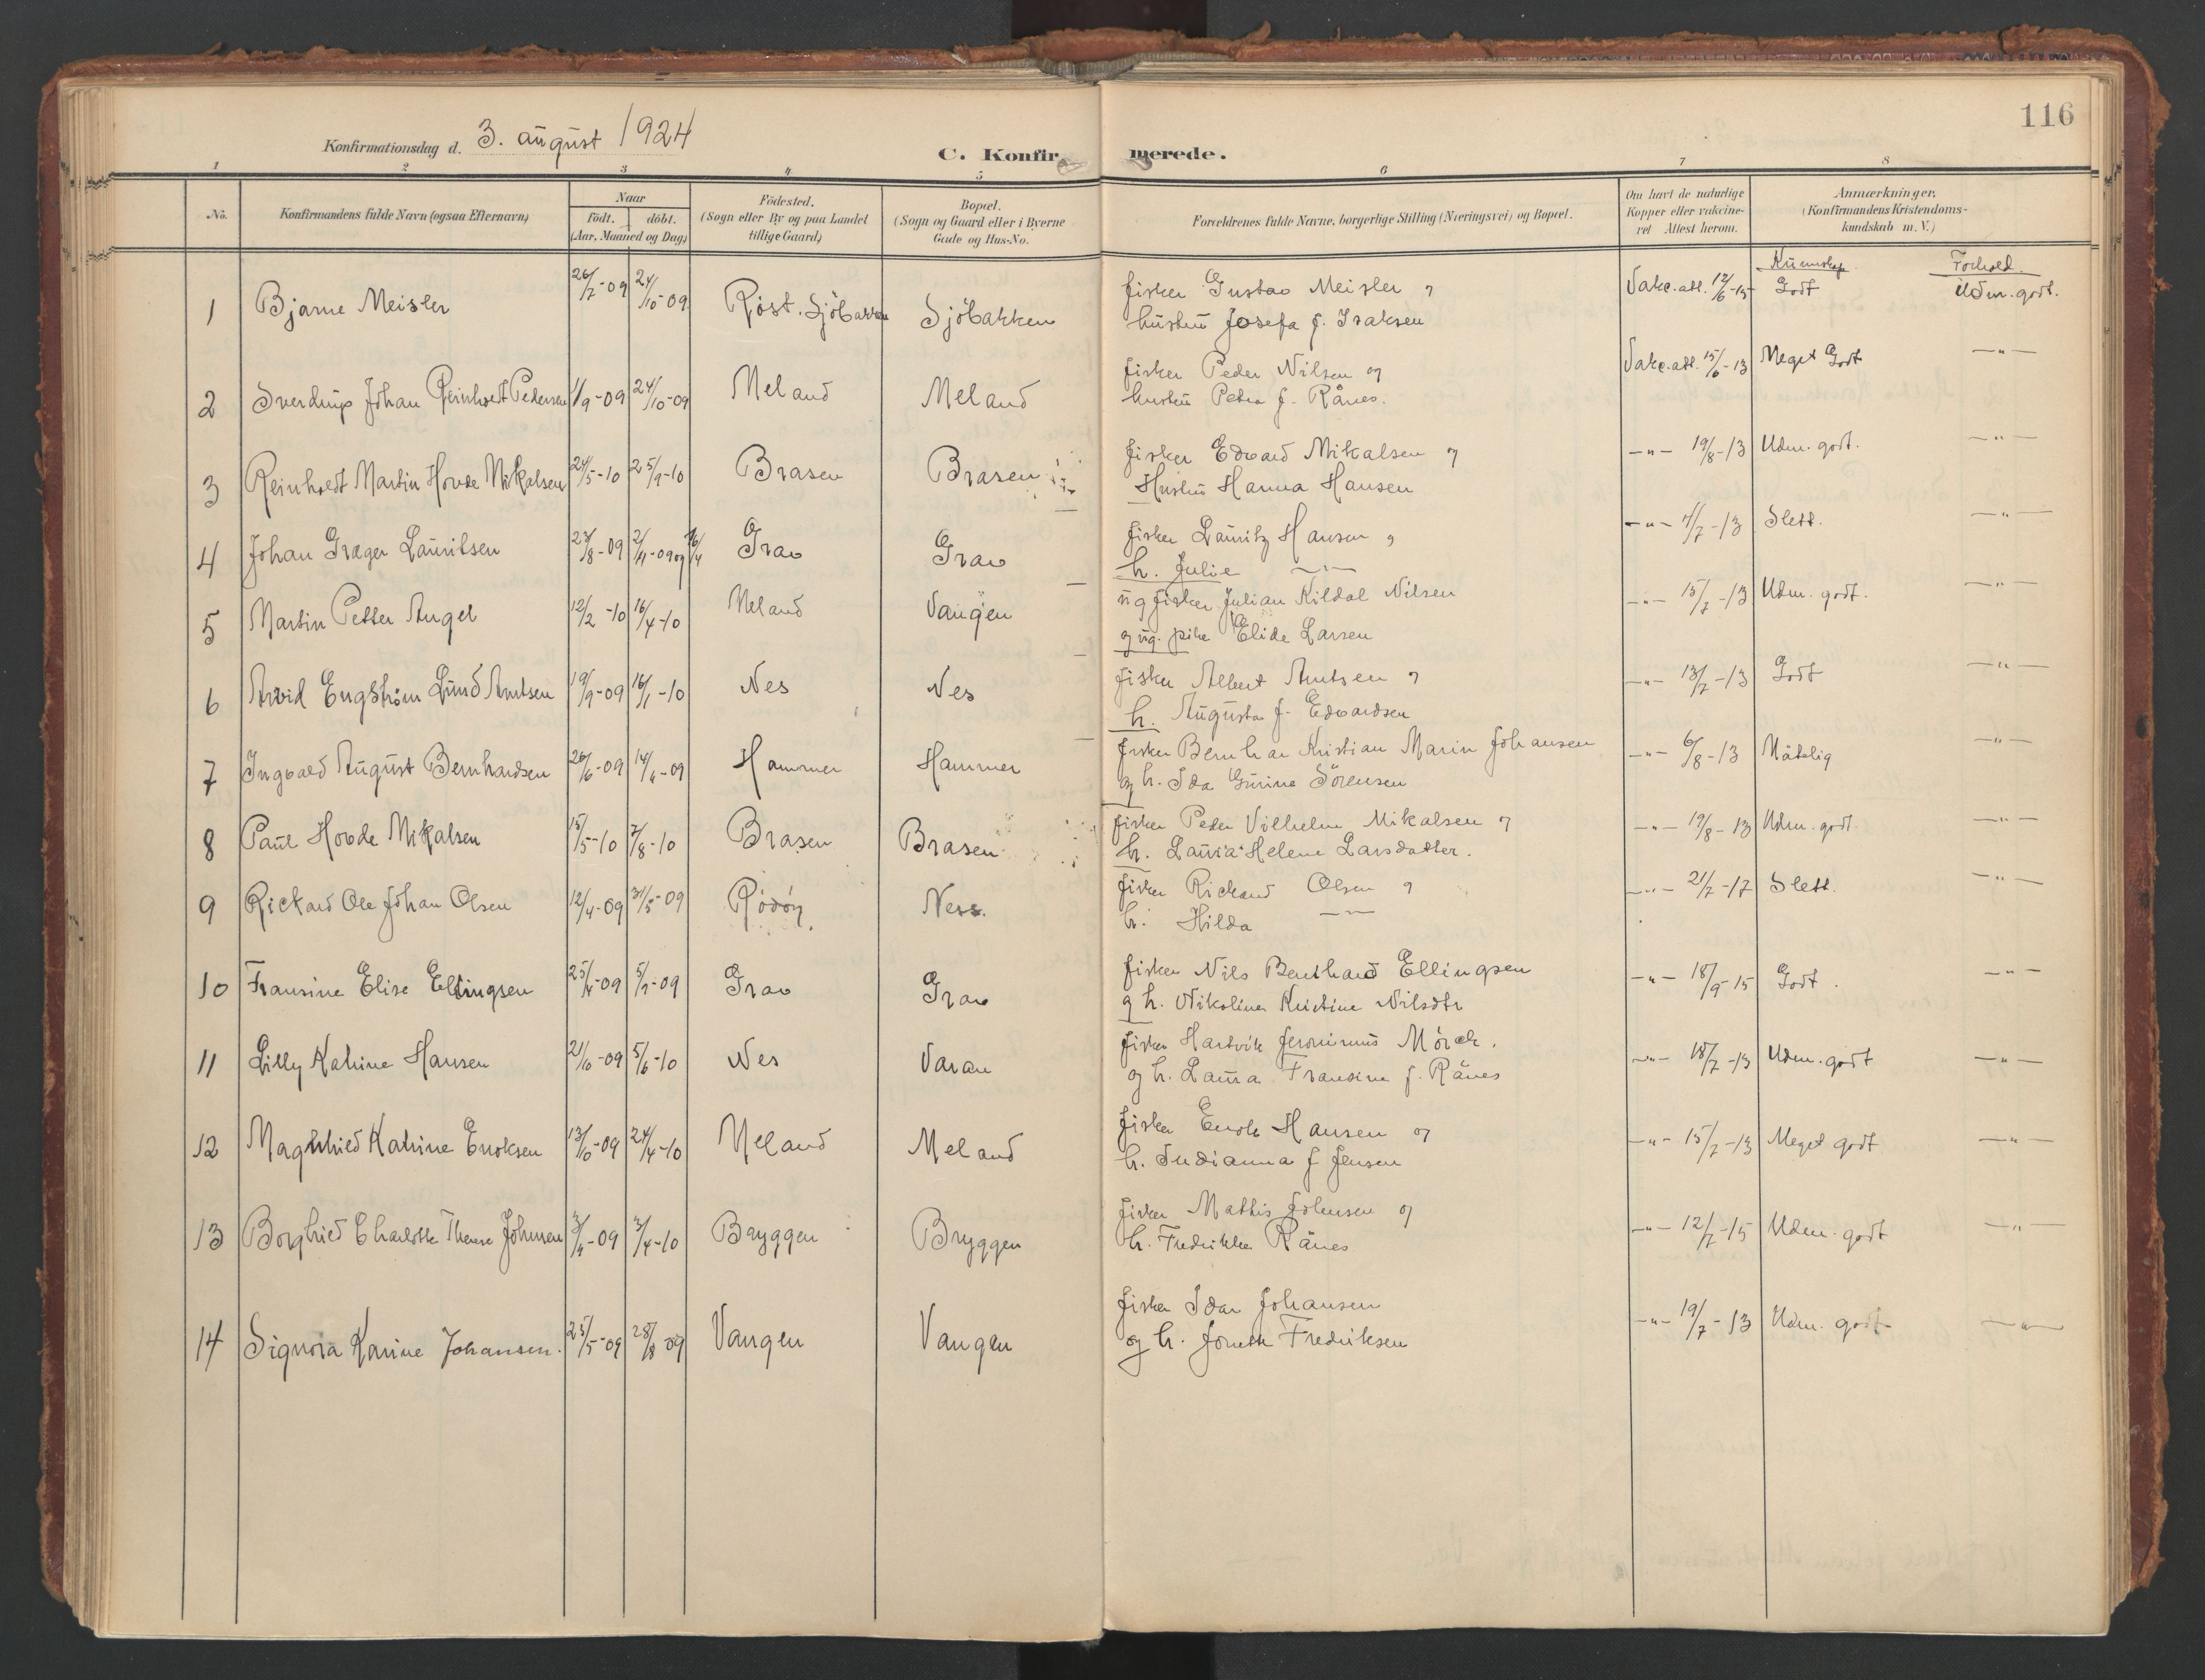 116
Konfirmationsdag d. 3. august 1924
C. Konfirmerede.
1 2 3 4 5 6 7 8
No. Konfirmandens fulde Navn (ogsaa Efternavn) Naar født. døbt. (Aar, Maaned og Dag) Fødested. (Sogn eller By og paa Landet tillige Gaard) Bopæl. (Sogn og Gaard eller i Byerne Gade og Hus-No. Forældrenes fulde Navne, borgerlige Stilling (Næringsvei) og Bopæl. Om havt de naturlige Kopper eller vakcineret Attest herom. Anmærkninger. (Konfirmandens Kristendomskundskab m. V.)
Kunnskap Forhold
1 Bjarne Meisler 26/7-09 24/10-09 Røst. Sjöbakken Sjöbakken fisker Gustav Meisler og Vakc.att. 12/6-15 Godt Udm. godt.
hustru Josefa f. Isaksen
2 Sverdrup Johan Reinholdt Pedersen 1/9-09 24/10-09 Meland Meland fisker Peder Nilsen og Vakc.att. 15/6-13 Meget Godt —"—
hustru Petra f. Rånes.
3 Reinholdt Martin Hovde Mikalsen 24/5-10 25/9-10 Brasen Brasen fisker Edvard Mikalsen og —"— 19/8-13 Udm. godt. —"—
Hustru Hanna Hansen
4 Johan Græger Lauritsen 23/8-09 2/11-09 og 16/4 Grav Grav fisker Lauritz Hansen og —"— 4/7-13 Slett. —"—
h. Julie —"—
5 Martin Petter Angel 12/2-10 16/4-10 Meland Vangen ug fisker Julian Kildal Nilsen —"— 15/7-13 Udm. godt. —"—
og ug. pike Elide Larsen
6 Arvid Engström Lund Arntsen 19/9-09 16/1-10 Nes Nes fisker Albert Arntsen og —"— 13/7-13 Godt —"—
h. Augusta f. Edvardsen
7 Ingvald August Bernhardsen 26/6-09 Hammer Hammer fisker Bernhar Kristian Marin Johansen —"— 6/8-13 Måtelig —"—
og h. Ida Gurine Sörensen
8 Paul Hovde Mikalsen 15/5-10 7/8-10 Brasen Brasen fisker Peder Vilhelm Mikalsen og —"— 19/8-13 Udm. godt. —"—
h. Laura Helene Larsdatter.
9 Rickard Ole Johan Olsen 12/4-09 31/5-09 Rödöy Ness. fisker Rickard Olsen og —"— 21/7-17 Slett. —"—
h. Hilda —"—
10 Fransine Elise Ellingsen 25/4-09 Grav Grav fisker Nils Benthard Ellingsen —"— 18/9-15 Godt. —"—
og h. Nikoline Kristine Nilsdtr
11 Lilly Katrine Hansen 21/6-09 5/6-10 Nes Varan fisker Hartvik Jeronimus Mörck. —"— 18/7-13 Udm. godt —"—
og h. Laura Fransine f. Rånes
12 Magnhild Katrine Enoksen 13/10-09 24/4-10 Meland Meland fisker Enok Hansen og —"— 15/7-13 Meget godt —"—
h. Indianna f Jensen
13 Borghild Charlotte Therese Johnsen 3/4-10 Bryggen Bryggen fisker Mathis Johnsen og —"— 12/7-15 Udm. godt —"—
h. Fredrikke Rånes
14 Signora Karine Johansen. 25/5-09 28/8-09 Vangen Vangen fisker Idar Johansen —"— 19/7-13 Udm. godt —"—
og h. Fredriksen